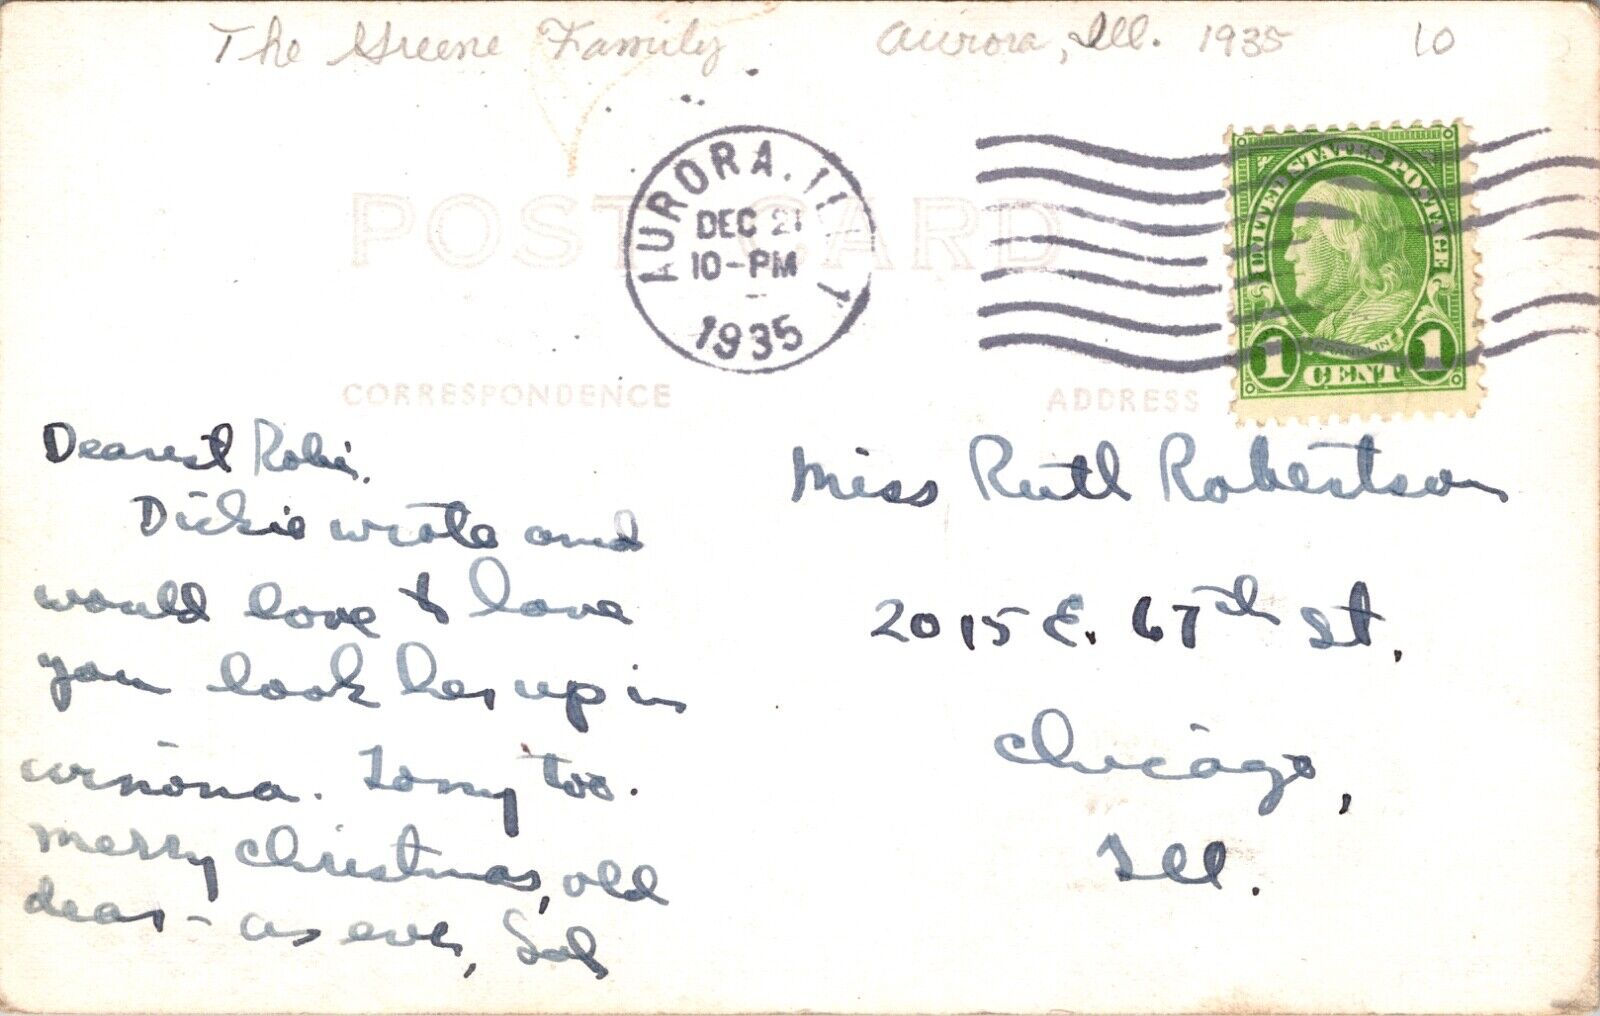 The Greene Family Aurora, Ill. 1935 10
AURORA, ILL.
DEC 21
10-PM
1935
1
UNITED STATES POSTAGE
FRANKLIN
1 CENT 1
POST CARD
CORRESPONDENCE
ADDRESS
Dearest Robin,
Dickie wrote and
would love to have
you look her up in
winona. Tony too.
merry christmas, old
dear - as ever, Sal
Miss Ruth Robertson
2015 E. 67th St.
Chicago,
Ill.